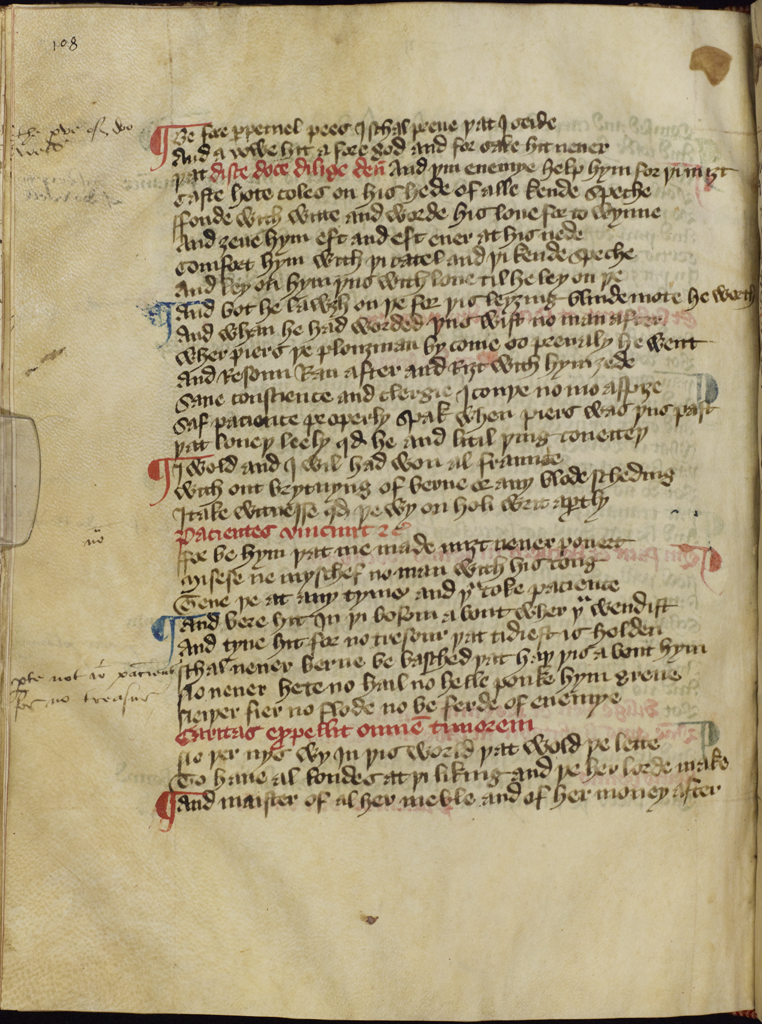 108
¶ Be fore ppetuel pees I schal preue þat I seide
And a vowe hit a fore god and for sake hit neuer
þat disce doce dilige deū And þin enemye help hym for þi miȝt
Caste hote coles on his hede of alle kende speche
ffonde with witte and worde his loue for to wynne
And ȝeue hym eft and eft euer at his nede
Comfort hym with þi catel and þi kende speche
And ley on hym þus with loue til he ley on þe
¶ And bot he lawȝh on þe for þis leyȝing blinde mote he worth
And whan he had worded þus wist no man after
Wher piers þe plouȝman by come so preualy he went
And Resoun Ran after and Riȝt with hym ȝede
Saue conscience and clergie I couþe no mo aspye
Saf pacience properly spak when piers was þus past
þat louey leely qd he and litil þing couetey
¶ I wold and I wil had won al fraunce
With out brytnyng of berne or any blode scheding
I take witnesse qd þe wy on holi writ aptly
Pacientes vincunt &c
For be hym þat me made miȝt neuer pouert
Misese ne myschef no man with his tong
Tene þe at any tyme and þu toke pacience
¶ And bere hit In þi bosom a bout wher þu wendist
And tyne hit for no tresour þat tidiest is holden
schal neuer berne be basched þat haþ þis a bout hym
No neuer hete no hail no helle pouke hym greue
Neiþer fier no flode no be ferde of enemye
Caritas expellit omnē timorem
No þer nys wy In þis world þat wold þe lette
To haue al londes at þi liking and þe her lorde make
¶ And maister of al her meble and of her money after
for no treasur